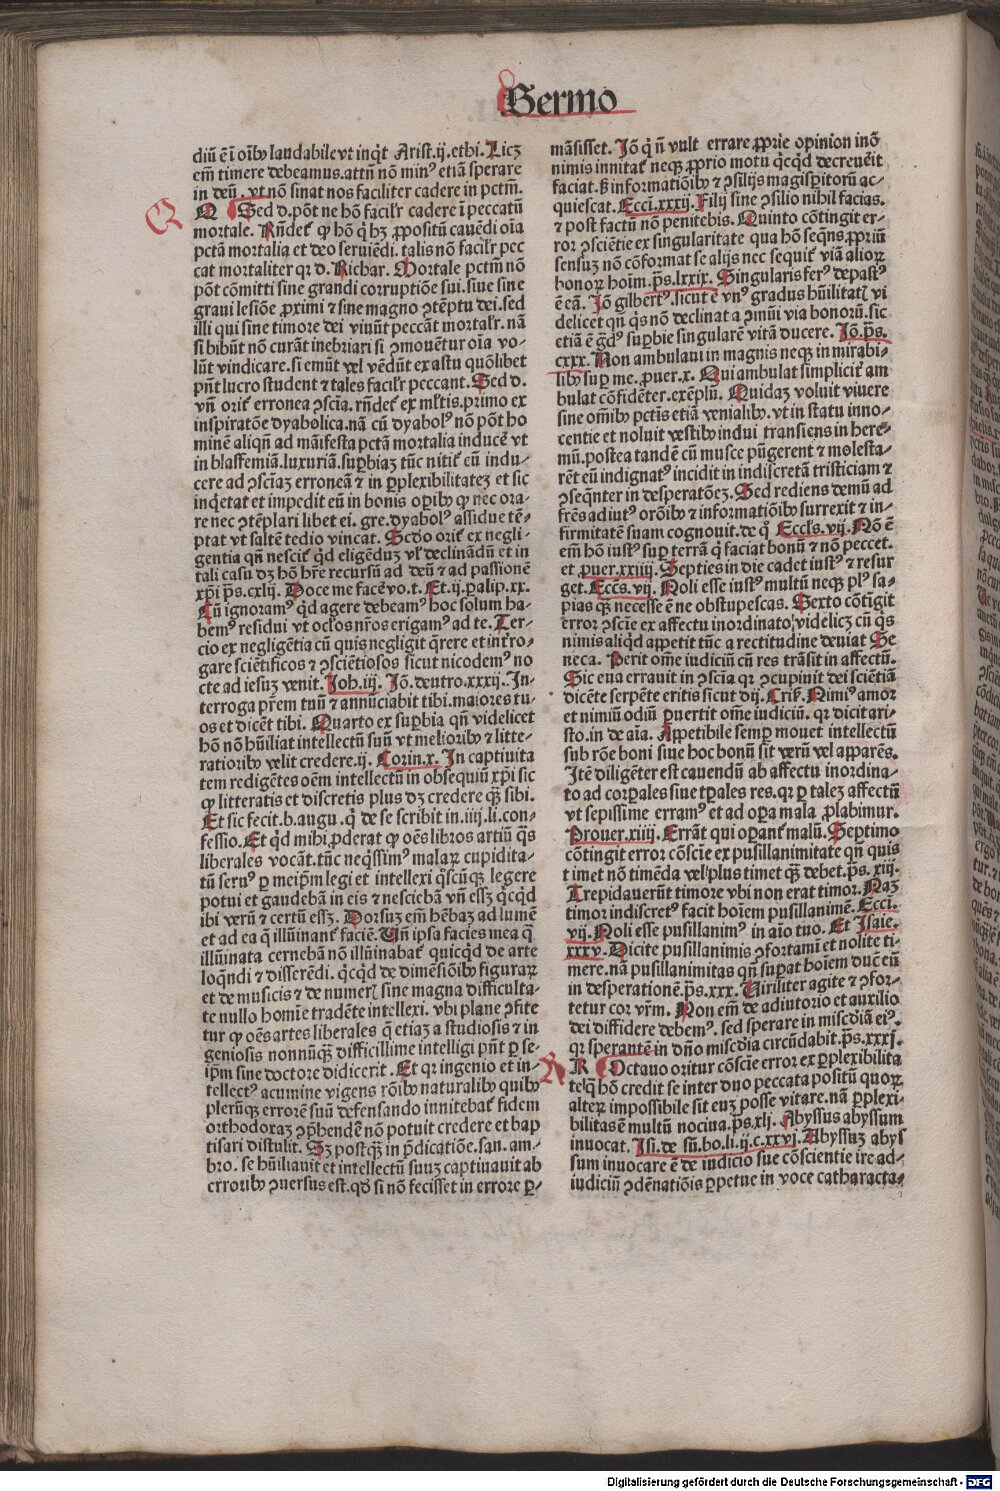 Sermo
diū ē ī oīb9 laudabile vt inqͭ Arist.ij.ethi. Licꝫ
em̄ timere debeamus.attn̄ nō min9 etiā sperare
in deū. vt nō sinat nos faciliter cadere in pctm̄.
Q Sed d.pōt ne hō facilꝛ cadere ī peccatū
mortale. Rn̄det ꝙ hō q̇ hꝫ ꝓpositū cauēdi oīa
pctā mortalia et deo seruiēdi. talis nō facilꝛ pec
cat mortaliter qꝛ d. Richar. Mortale pctm̄ nō
pōt cōmitti sine grandi corruptiōe sui.siue sine
graui lesiōe ꝓximi ⁊ sine magno ꝯtēptu dei.sed
illi qui sine timore dei viuūt peccāt mortalꝛ. nā
si bibūt nō curāt inebriari si ꝯmouētur oīa vo-
lūt vindicare.si emūt vel vēdūt ex astu quōlibet
pn̄t lucro student ⁊ tales facilꝛ peccant. Sed d.
vn̄ orit̄ erronea ꝯscīa. rn̄det̄ ex ml̄tis.primo ex
inspiratōe dyabolica.nā cū dyabol9 nō pōt ho
minē aliqn̄ ad māifesta pctā mortalia inducē vt
in blasfemiā.luxuriā.suꝑbiaꝫ tūc nitit̄ eū indu-
cere ad ꝯscīaꝫ erroneā ⁊ in ꝑplexibilitateꝫ et sic
inq̇etat et impedit eū in bonis oꝑib9 ꝙ nec ora-
re nec ꝯtēplari libet ei. gre.dyabol9 assidue tē-
ptat vt saltē tedio vincat. Scd̄o orit̄ ex negli-
gentia qn̄ nescit̄ qd̄ eligēduꝫ vl̄ declinādū et in
tali casu dꝫ hō hr̄e recursū ad deū ⁊ ad passionē
xp̄i ps̄.cxlij. Doce me facē vo.t. Et.ij.ꝑalip.xx.
Cū ignoram9 qd̄ agere debeam9 hoc solum ha-
bem9 residui vt oclos nr̄os erigam9 ad te. Ter-
cio ex negligētia cū quis negligit q̄rere et int̄ro-
gare sciētificos ⁊ ꝯsciētiosos sicut nicodem9 no
cte ad iesuꝫ venit. Joh.iij. Jō. deutro.xxxij. In-
terroga pr̄em tuū ⁊ annūciabit tibi.maiores tu-
os et dicēt tibi. Quarto ex suꝑbia qn̄ videlicet
hō nō hūiliat intellectū suū vt meliorib9 ⁊ litte-
ratiorib9 velit credere.ij. Corin.x. In captiuita
tem redigētes oēm intellectū in obsequiū xp̄i sic
ꝙ litteratis et discretis plus dꝫ credere qꝫ̄ sibi.
Et sic fecit.b.augu. q̇ de se scribit in.iiij.li.con-
fessio. Et qd̄ mihi ꝓderat ꝙ oēs libros artiū q̄s
liberales vocāt.tūc neq̇ssim9 malaꝝ cupidita-
tū seru9 ꝑ meip̄m legi et intellexi q̄scūqꝫ legere
potui et gaudebā in eis ⁊ nesciebā vn̄ eēꝫ q̇cqd̄
ibi verū ⁊ certū eēꝫ. Dorsuꝫ em̄ hēbaꝫ ad lumē
et ad ea q̄ illūinant̄ faciē. Vn̄ ipsa facies mea q̄
illūinata cernebā nō illūinabat̄ quicqd̄ de arte
loqn̄di ⁊ disserēdi. q̇cqd̄ de dimēsiōib9 figuraꝝ
et de musicis ⁊ de numeris sine magna difficulta-
te nullo homīe tradēte intellexi. vbi plane ꝯfite
tur ꝙ oēs artes liberales q̄ etiaꝫ a studiosis ⁊ in
geniosis nonnūqꝫ difficillime intelligi pn̄t ꝑ se-
ip̄m sine doctore didicerit. Et qꝛ ingenio et in-
tellect9 acumine vigens rōib9 naturalib9 quib9
plerūqꝫ errorē suū defensando innitebat̄ fidem
orthodoxaꝫ ꝯp̄hendē nō potuit credere et bap
tisari distulit. Sꝫ postqꝫ̄ in p̄dicatiōe.san. am-
bro. se hūiliauit et intellectū suuꝫ captiuauit ab
errorib9 ꝯuersus est.qd̄ si nō fecisset in errore ꝑ-
māsisset. Jō q̇ n̄ vult errare ꝓprie opinion inō
nimis innitat̄ neqꝫ ꝓprio motu q̇cqd̄ decreuerit
faciat.sꝫ informatiōib9 ⁊ ꝯsilijs magisꝑitorū ac-
quiescat. Ecci.xxxij. Filij sine ꝯsilio nihil facias.
⁊ post factū nō penitebis. Quinto cōtingit er-
ror ꝯsciētie ex singularitate qua hō seqn̄s ꝓpriū
sensuꝫ nō cōformat se alijs nec sequit̄ viā alioꝝ
honoꝝ hoim̄.ps̄.lxxix. Singularis fer9 depast9
ē eā. Jō gilbert9.sicut ē vn9 gradus hūilitatis vi
delicet qn̄ q̇s nō declinat a ꝯmūi via bonorū.sic
etiā ē gd̄9 suꝑbie singularē vitā ducere. Jō.ps̄.
cxxx. Non ambulaui in magnis neqꝫ in mirabi-
lib9 suꝑ me. ꝓuer.x. Qui ambulat simplicit̄ am
bulat cōfidēter.exēplū. Quidaꝫ voluit viuere
sine om̄ib9 pctīs etiā venialib9. vt in statu inno-
centie et noluit vestib9 indui transiens in here-
mū.postea tandē cū musce pūgerent ⁊ molesta-
rēt eū indignat9 incidit in indiscretā tristiciam ⁊
ꝯseqn̄ter in desperatōeꝫ. Sed rediens demū ad
frēs adiut9 orōib9 ⁊ informatiōib9 surrexit ⁊ in-
firmitatē suam cognouit.de q̊ Eccls̄.vij. Nō ē
em̄ hō iust9 suꝑ terrā q̇ faciat bonū ⁊ nō peccet.
et ꝓuer.xxiiij. Septies in die cadet iust9 ⁊ resur
get. Eccēs.vij. Noli esse iust9 multū neqꝫ pl9 sa-
pias qꝫ̄ necesse ē ne obstupescas. Sexto cōtigit
error ꝯscīe ex affectu inordinato.videlicꝫ cū q̇s
nimis aliqd̄ appetit tūc a rectitudine deuiat Se
neca. Perit om̄e iudiciū cū res trāsit in affectū.
Sic eua errauit in ꝯscīa qꝛ ꝯcupiuit dei sciētiā
dicēte serpēte eritis sicut dij. Cris̄. Nimi9 amor
et nimiū odiū ꝑuertit om̄e iudiciū. qꝛ dicit ari-
sto.in de aīa. Appetibile semꝑ mouet intellectū
sub rōe boni siue hoc bonū sit verū vel apparēs.
Jtē diligēter est cauendū ab affectu inordina-
to ad corꝑales siue tꝑales res.qꝛ ꝑ taleꝫ affectū
vt sepissime erram9 et ad oꝑa mala ꝓlabimur.
Prouer.xiiij. Errāt qui oꝑant̄ malū. Septimo
cōtingit error cōscīe ex pusillanimitate qn̄ quis
timet nō timēda vel plus timet qꝫ̄ debet.ps̄.xiij.
Trepidauerūt timore vbi non erat timor. Naꝫ
timor indiscret9 facit hoīem pusillanimē. Ecci.
vij. Noli esse pusillanim9 in aīo tuo. Et Isaie.
xxxv. Dicite pusillanimis ꝯfortamī et nolite ti-
mere.nā pusillanimitas qn̄ suꝑat hoīem ducē eū
in desperationē.ps̄.xxx. Viriliter agite ⁊ ꝯfor-
tetur cor vr̄m. Non em̄ de adiutorio et auxilio
dei diffidere debem9. sed sperare in miscd̄iā ei9.
qꝛ sperantē in dn̄o miscd̄ia circūdabit.ps̄.xxxj.
R Octauo oritur cōscīe error ex ꝑplexibilita
te.q̄ hō credit se inter duo peccata positū quoꝝ
alteꝝ impossibile sit euꝫ posse vitare.nā ꝑplexi-
bilitas ē multū nociua.ps̄.xlj. Abyssus abyssum
inuocat. Isi.de sū.bo.li.ij.c.xxvj. Abyssuꝫ abys
sum inuocare ē de iudicio sue cōscientie ire ad-
iudiciū ꝯdēnatiōis ꝑpetue in voce catharacta-
Digitalisierung gefördert durch die Deutsche Forschungsgemeinschaft - DFG